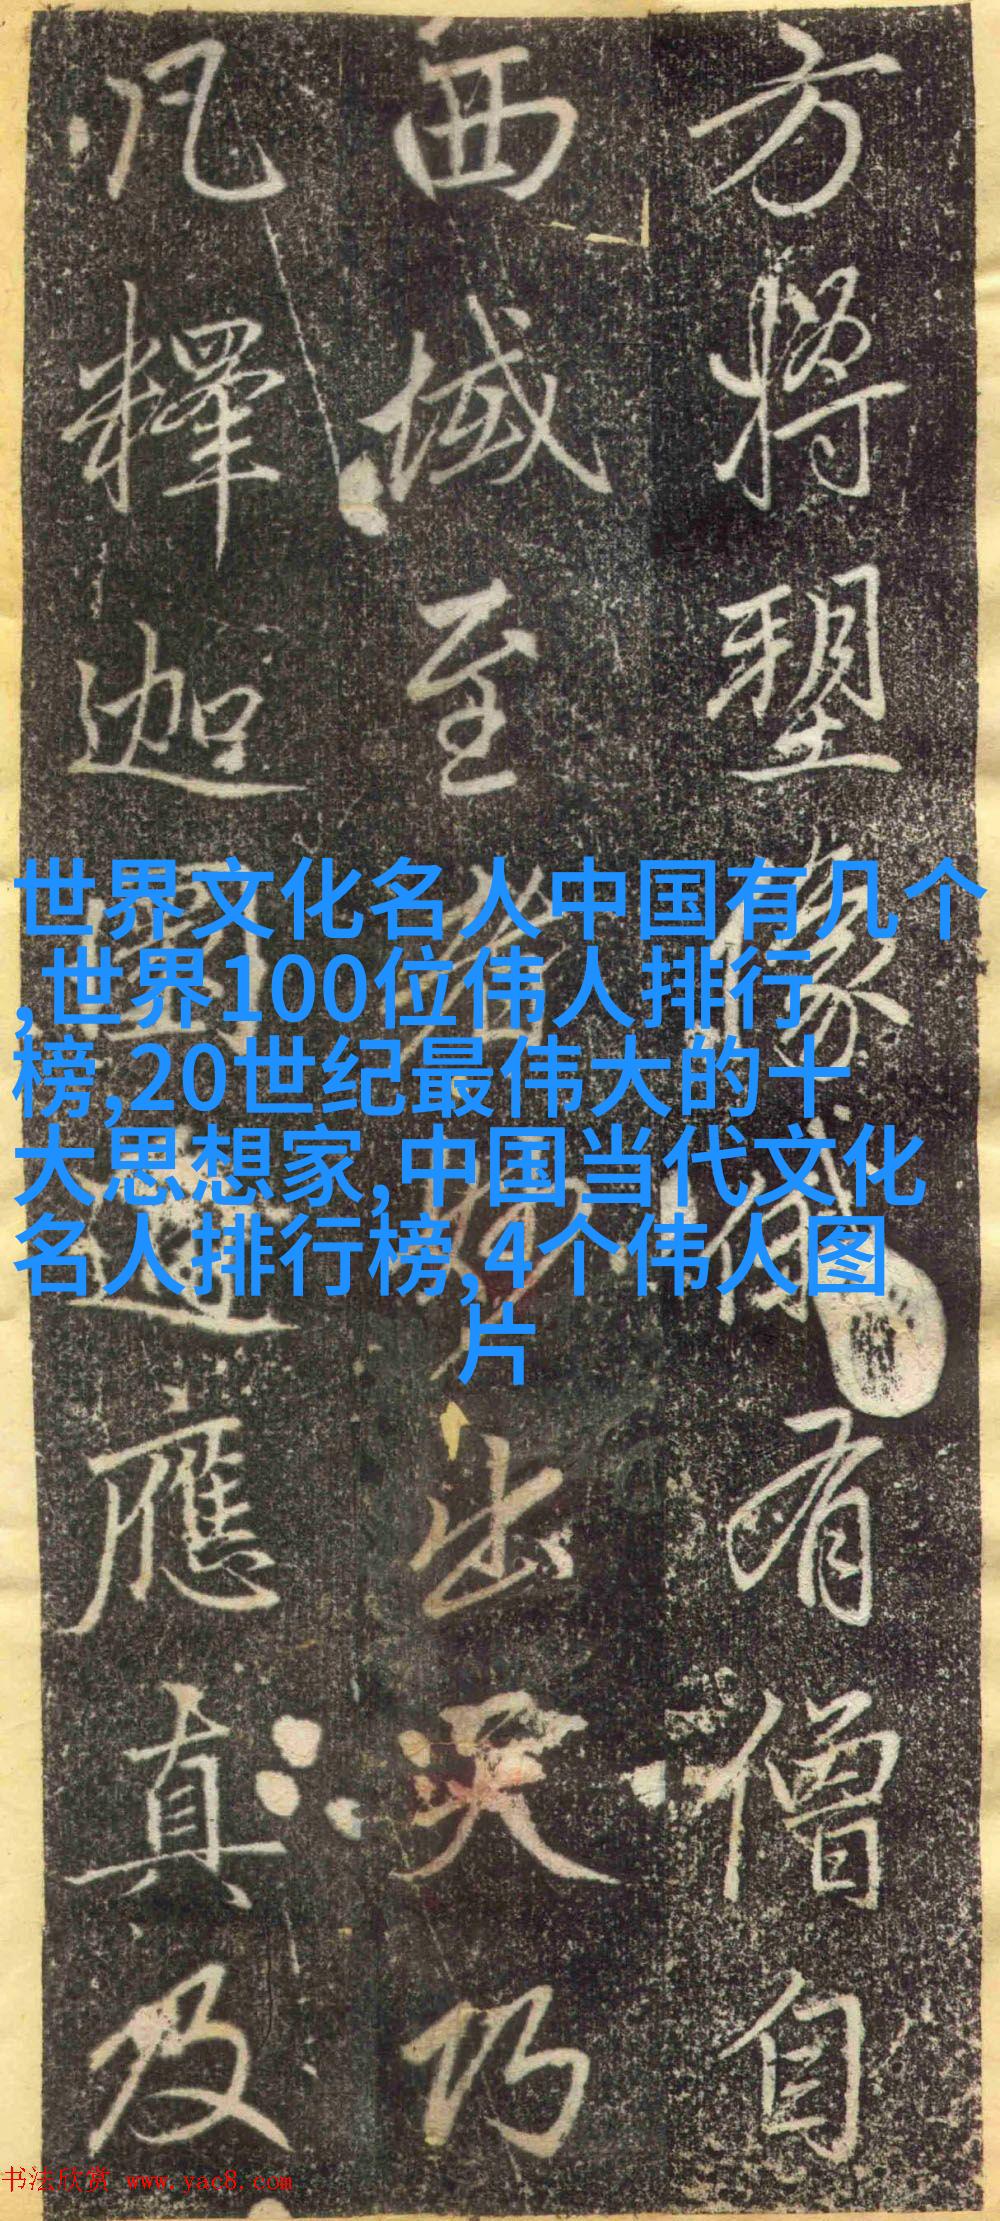 方將塑像俄有僧自
西域至出乃
凡釋迦圍遶應真及
世界文化名人中国有几个
,世界100位伟人排行
榜,20世纪最伟大的十
大思想家,中国当代文化
名人排行榜,4个伟人图
片
书法欣赏 www.yac8.com